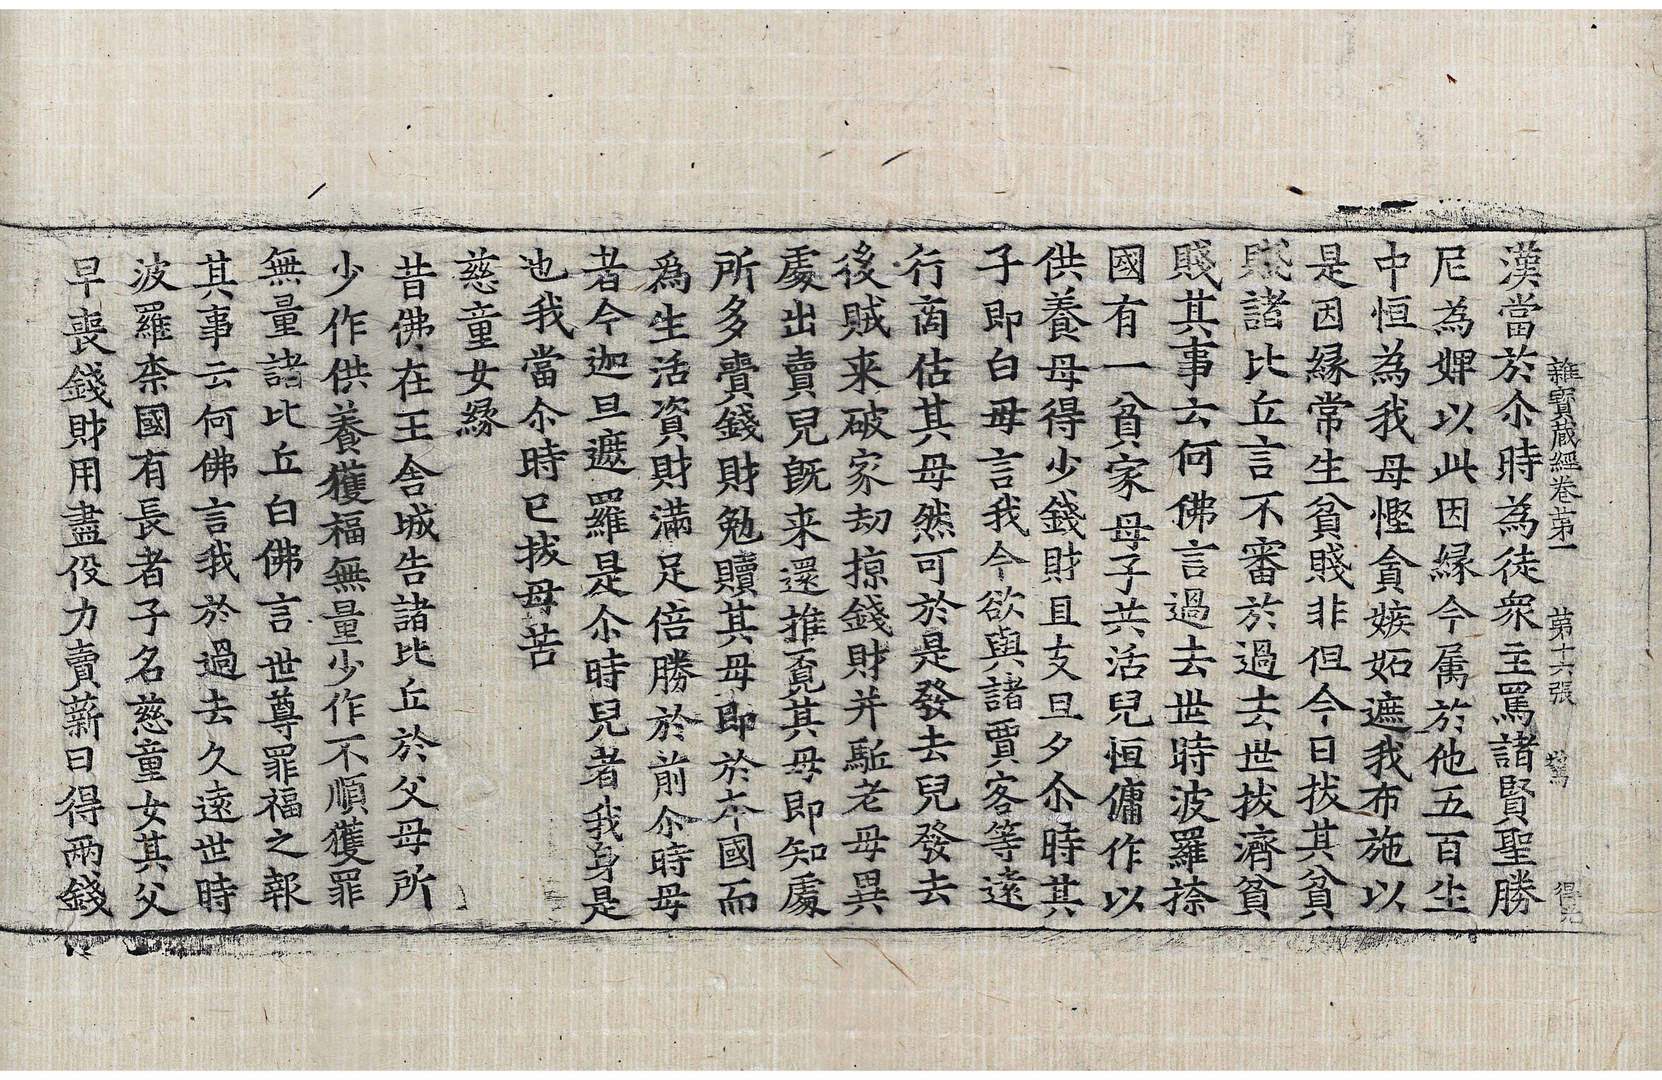 雜寶蔵經卷第一 第十六張 驚 得
漢當於尒時為徒衆主罵諸賢聖勝
尼為婢以此因縁今属於他五百生
中恒為我母慳貪嫉妬遮我布施以
是因縁常生貧賤非但今日拔其貧
賤諸比丘言不審於過去世拔濟貧
賤其事云何佛言過去世時波羅捺
國有一貧家母子共活兒恒傭作以
供養母得少錢財且支旦夕尒時其
子即白母言我今欲與諸賈客等遠
行商估其母然可於是發去兒發去
後賊来破家劫掠錢財并駈老母異
處出賣兒旣来還推覓其母即知處
所多賷錢財勉贖其母即於本國而
爲生活資財滿足倍勝於前尒時母
者今迦旦遮羅是尒時兒者我身是
也我當尒時已拔母苦
慈童女縁
昔佛在王舍城告諸比丘於父母所
少作供養獲福無量少作不順獲罪
無量諸比丘白佛言世尊罪福之報
其事云何佛言我於過去久遠世時
波羅柰國有長者子名慈童女其父
早喪錢財用盡役力賣薪日得兩錢